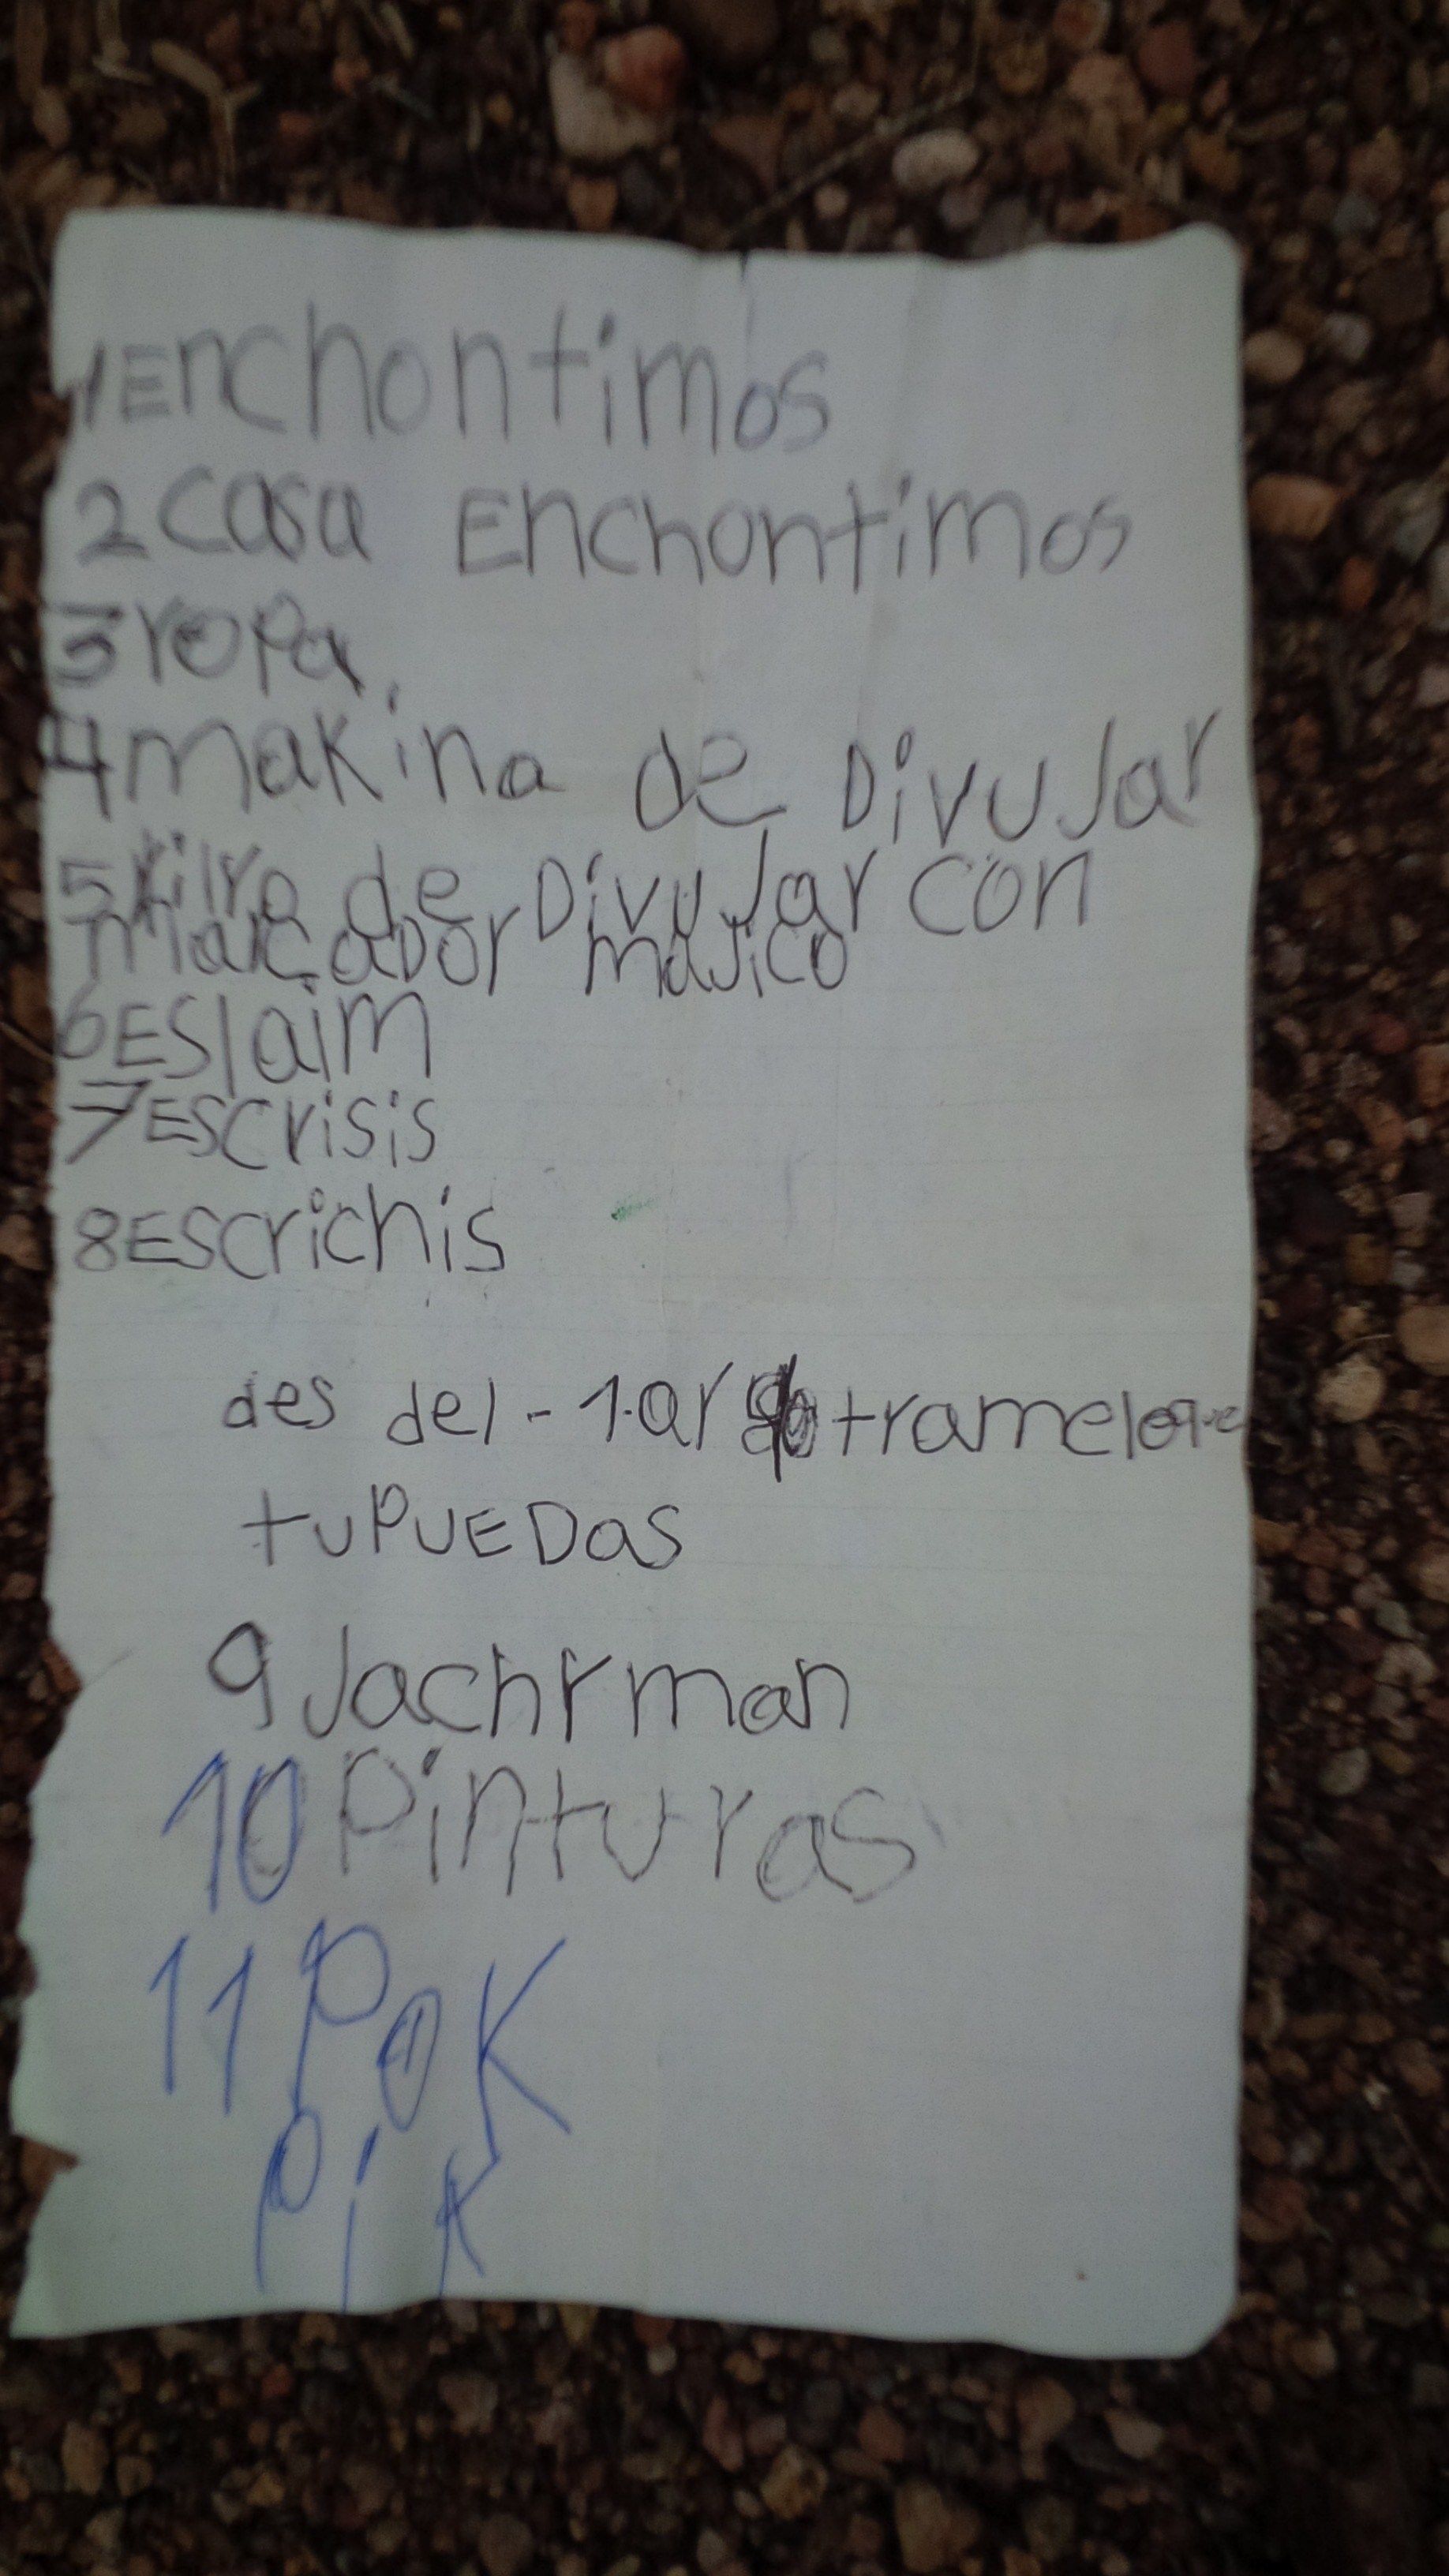 1Enchontimos
2casa Enchontimos
3ropa.
4makina de Divujar
de Divujar con
marcador majico
6Eslaim
7Escrisis
8Escrichis
des del-1.ar trameloque
tuPuEDas
9Jachrman
10Pinturas
11Pok
Pik